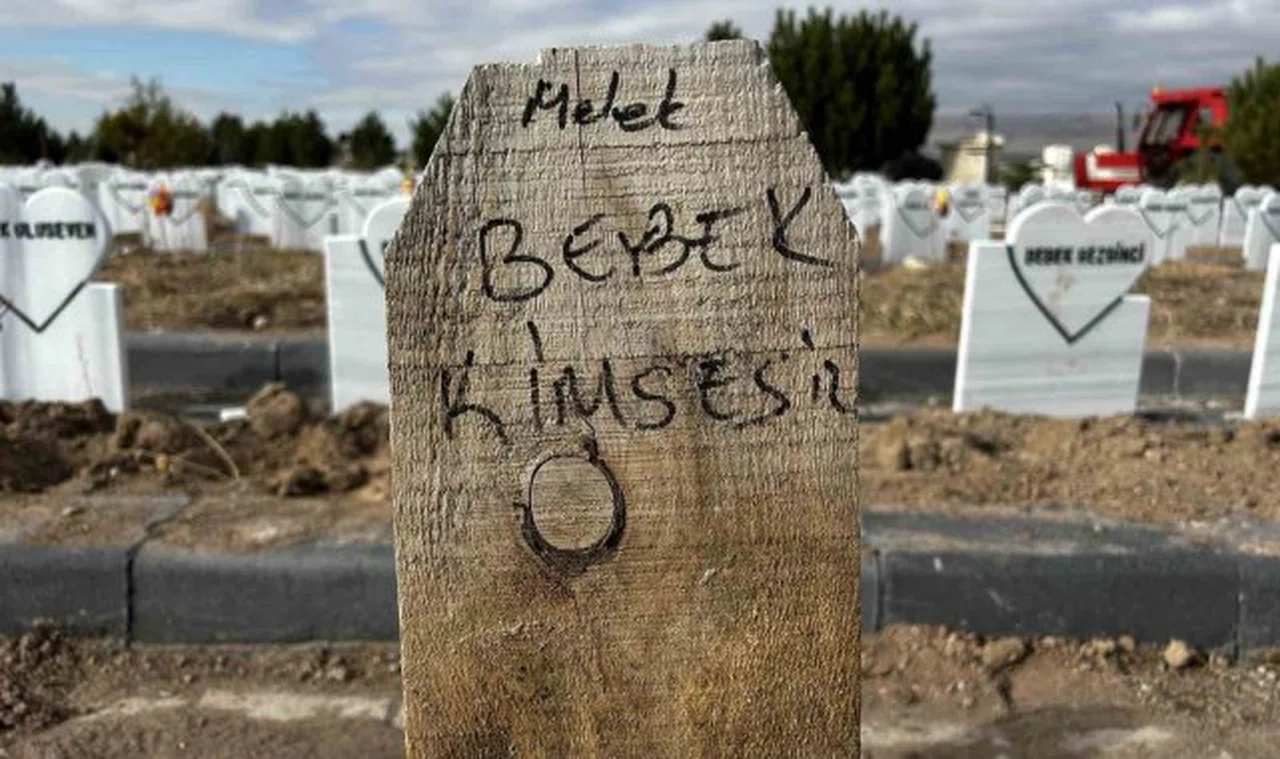 Melek
BEYBEK
KİMSESİZ
K ULUSEVEN
BEBEK GEZGİNCİ